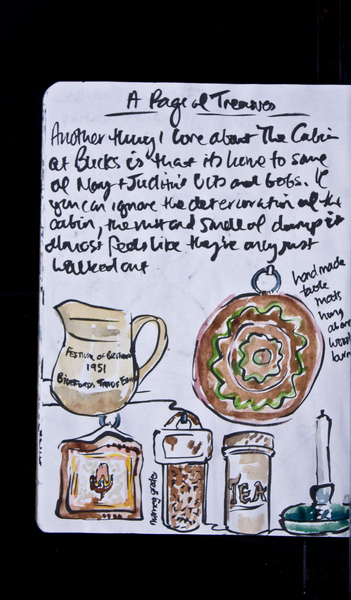 A Page of Treasures
Another thing I love about The Cabin
at Bucks is that its home to some
of Mary + Judith's bits and bobs. If
you can ignore the deterioration of the
cabin, the rust and smell of damp it
almost feels like they're only just
walked out
hand made
table
mats
hang
above
wood
burn
Festival of Britain
1951
Nutmeg grater
TEA